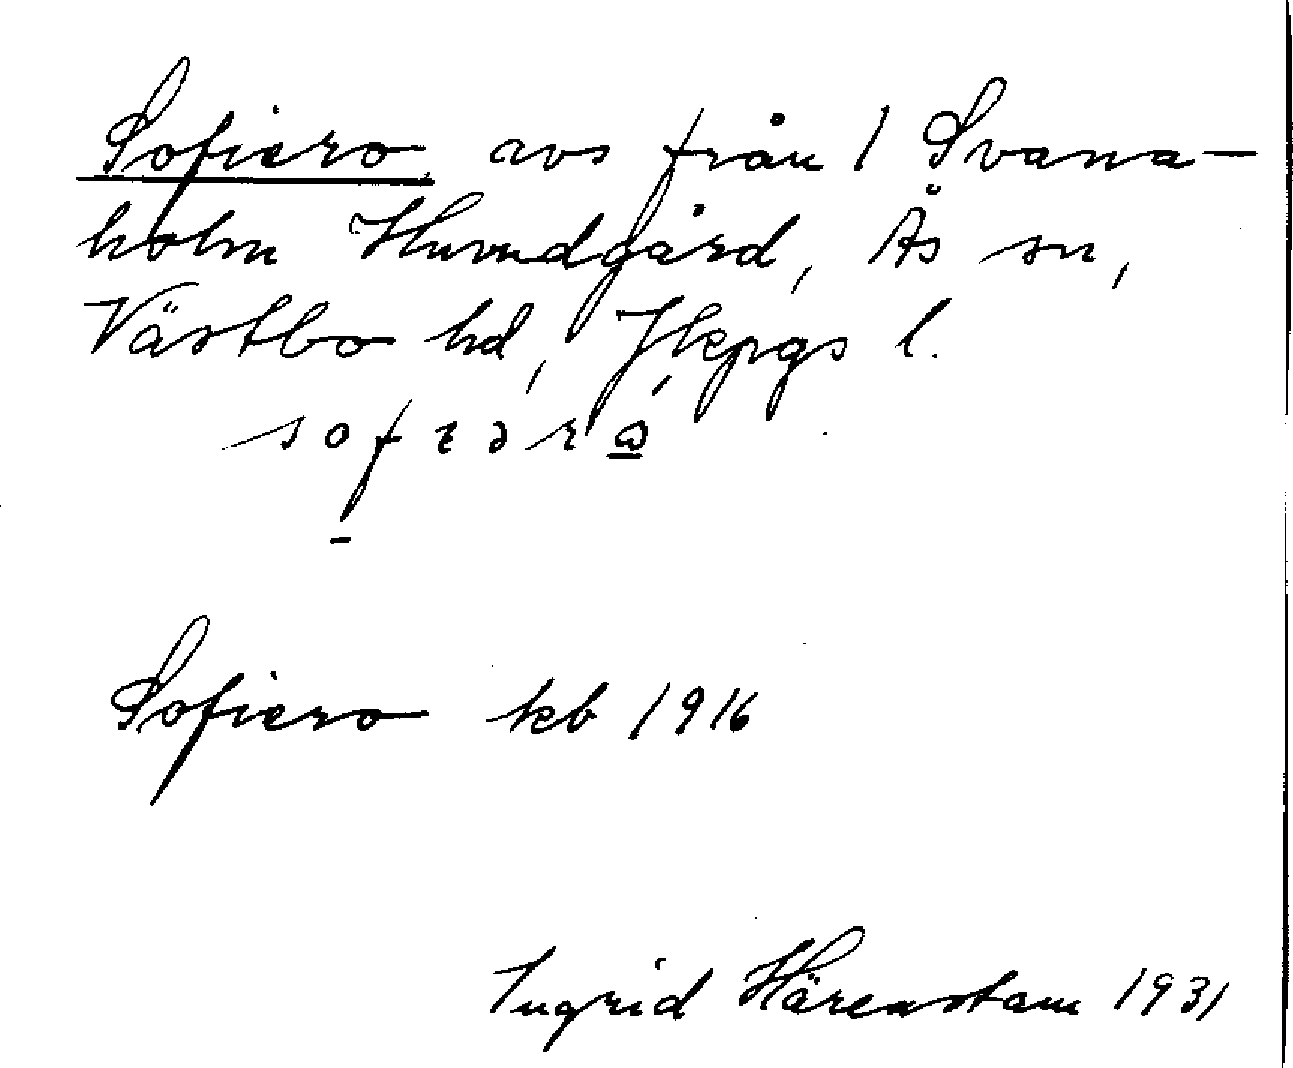 Sofiero avs från 1 Svana-
holm Huvudgård, Ås sn,
Västbo hd, Jkpgs l.
Sofiero kb 1916
Ingrid Härenstam 1931